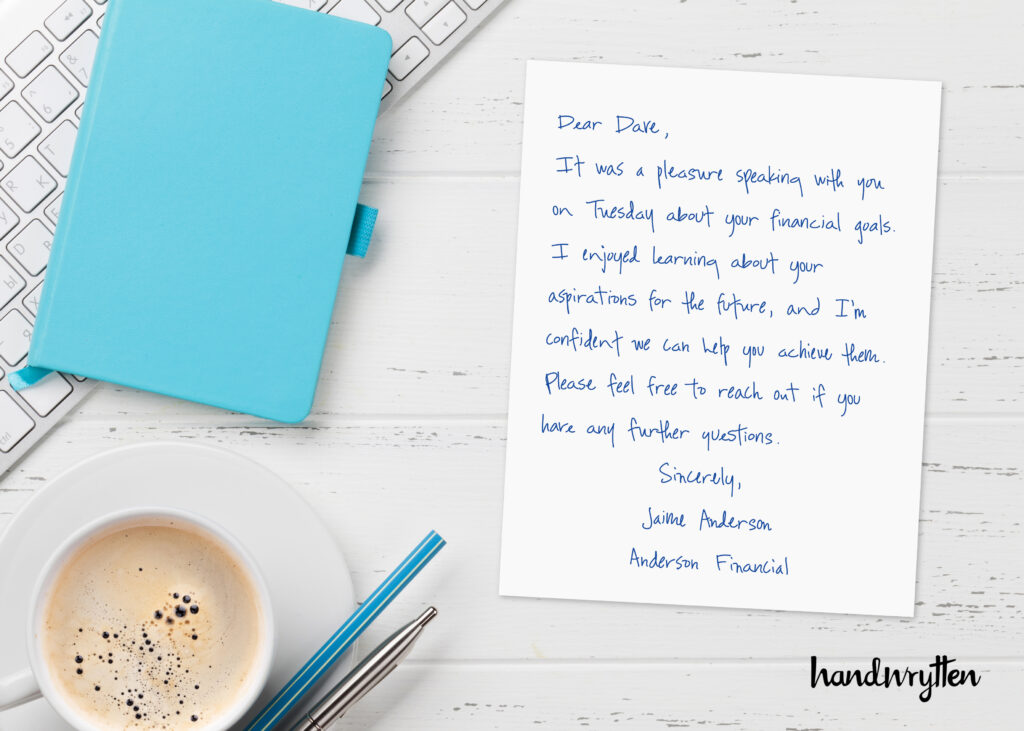 Dear Dave,
It was a pleasure speaking with you
on Tuesday about your financial goals.
I enjoyed learning about your
aspirations for the future, and I'm
confident we can help you achieve them.
Please feel free to reach out if you
have any further questions.
Sincerely,
Jaime Anderson
Anderson Financial
handwrytten
6
5
R
D
Ы
ctrl